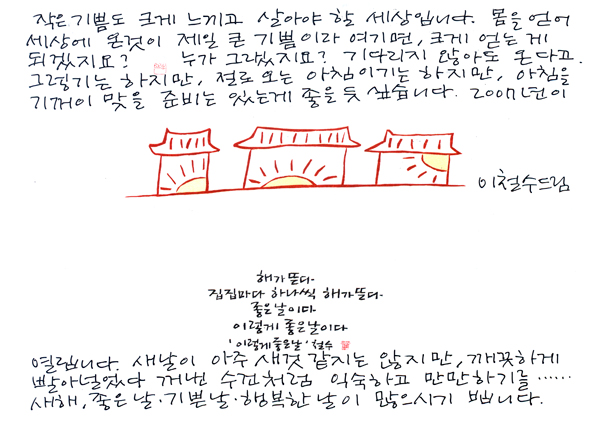 작은기쁨도 크게 느끼고 살아야 할 세상입니다. 몸을 얻어
세상에 온것이 제일 큰 기쁨이라 여기면, 크게 얻는게
되겠지요? 누가 그랬지요? 기다리지 않아도 온다고.
그렇기는 하지만, 절로 오는 아침이기는 하지만, 아침을
기꺼이 맞을 준비는 있는게 좋을듯 싶습니다. 2007년이
이철수드림
해가 뜬다-
집집마다 하나씩 해가 뜬다-
좋은날이다
이렇게 좋은날이다
'이렇게좋은날' 철수
열립니다. 새날이 아주 새것 같지는 않지만, 깨끗하게
빨아널었다 거번 수건처럼 익숙하고 만만하기를……
새해, 좋은 날·기쁜날·행복한 날이 많으시기 빕니다.